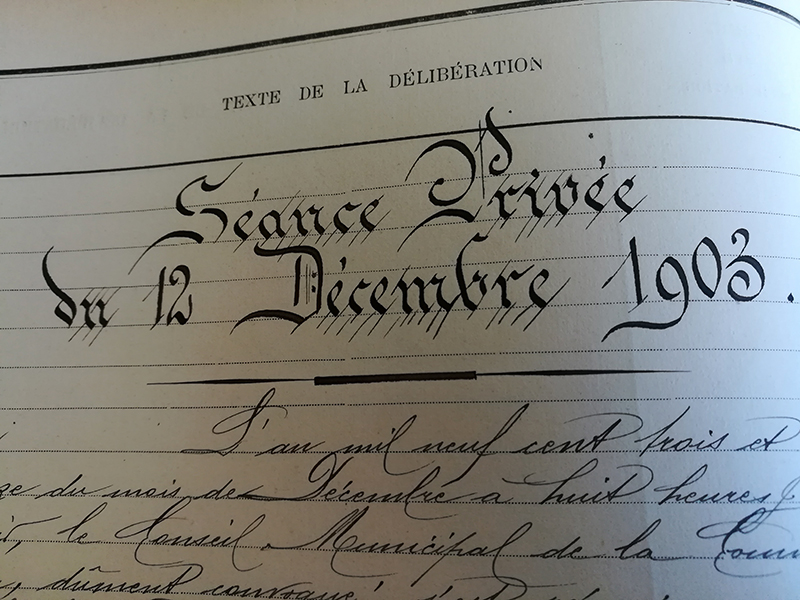 TEXTE DE LA DÉLIBÉRATION
Séance Privée
du 12 Décembre 1903.
L'an mil neuf cent trois et
ze du mois de Décembre à huit heures
le Conseil Municipal de la Comm
dûment convoqué